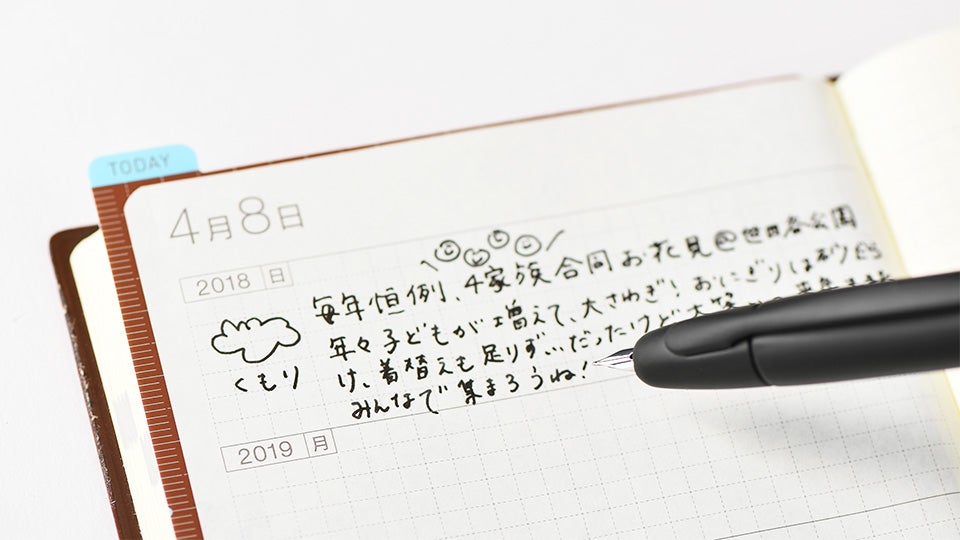 TODAY
4月8日
2018 日
毎年恒例、4家族合同お花見@世田谷公園
年々子どもが増えて、大さわぎ!おにぎりは
け、着替えも足りず…だったけど大
みんなで集まろうね!
くもり
2019 月